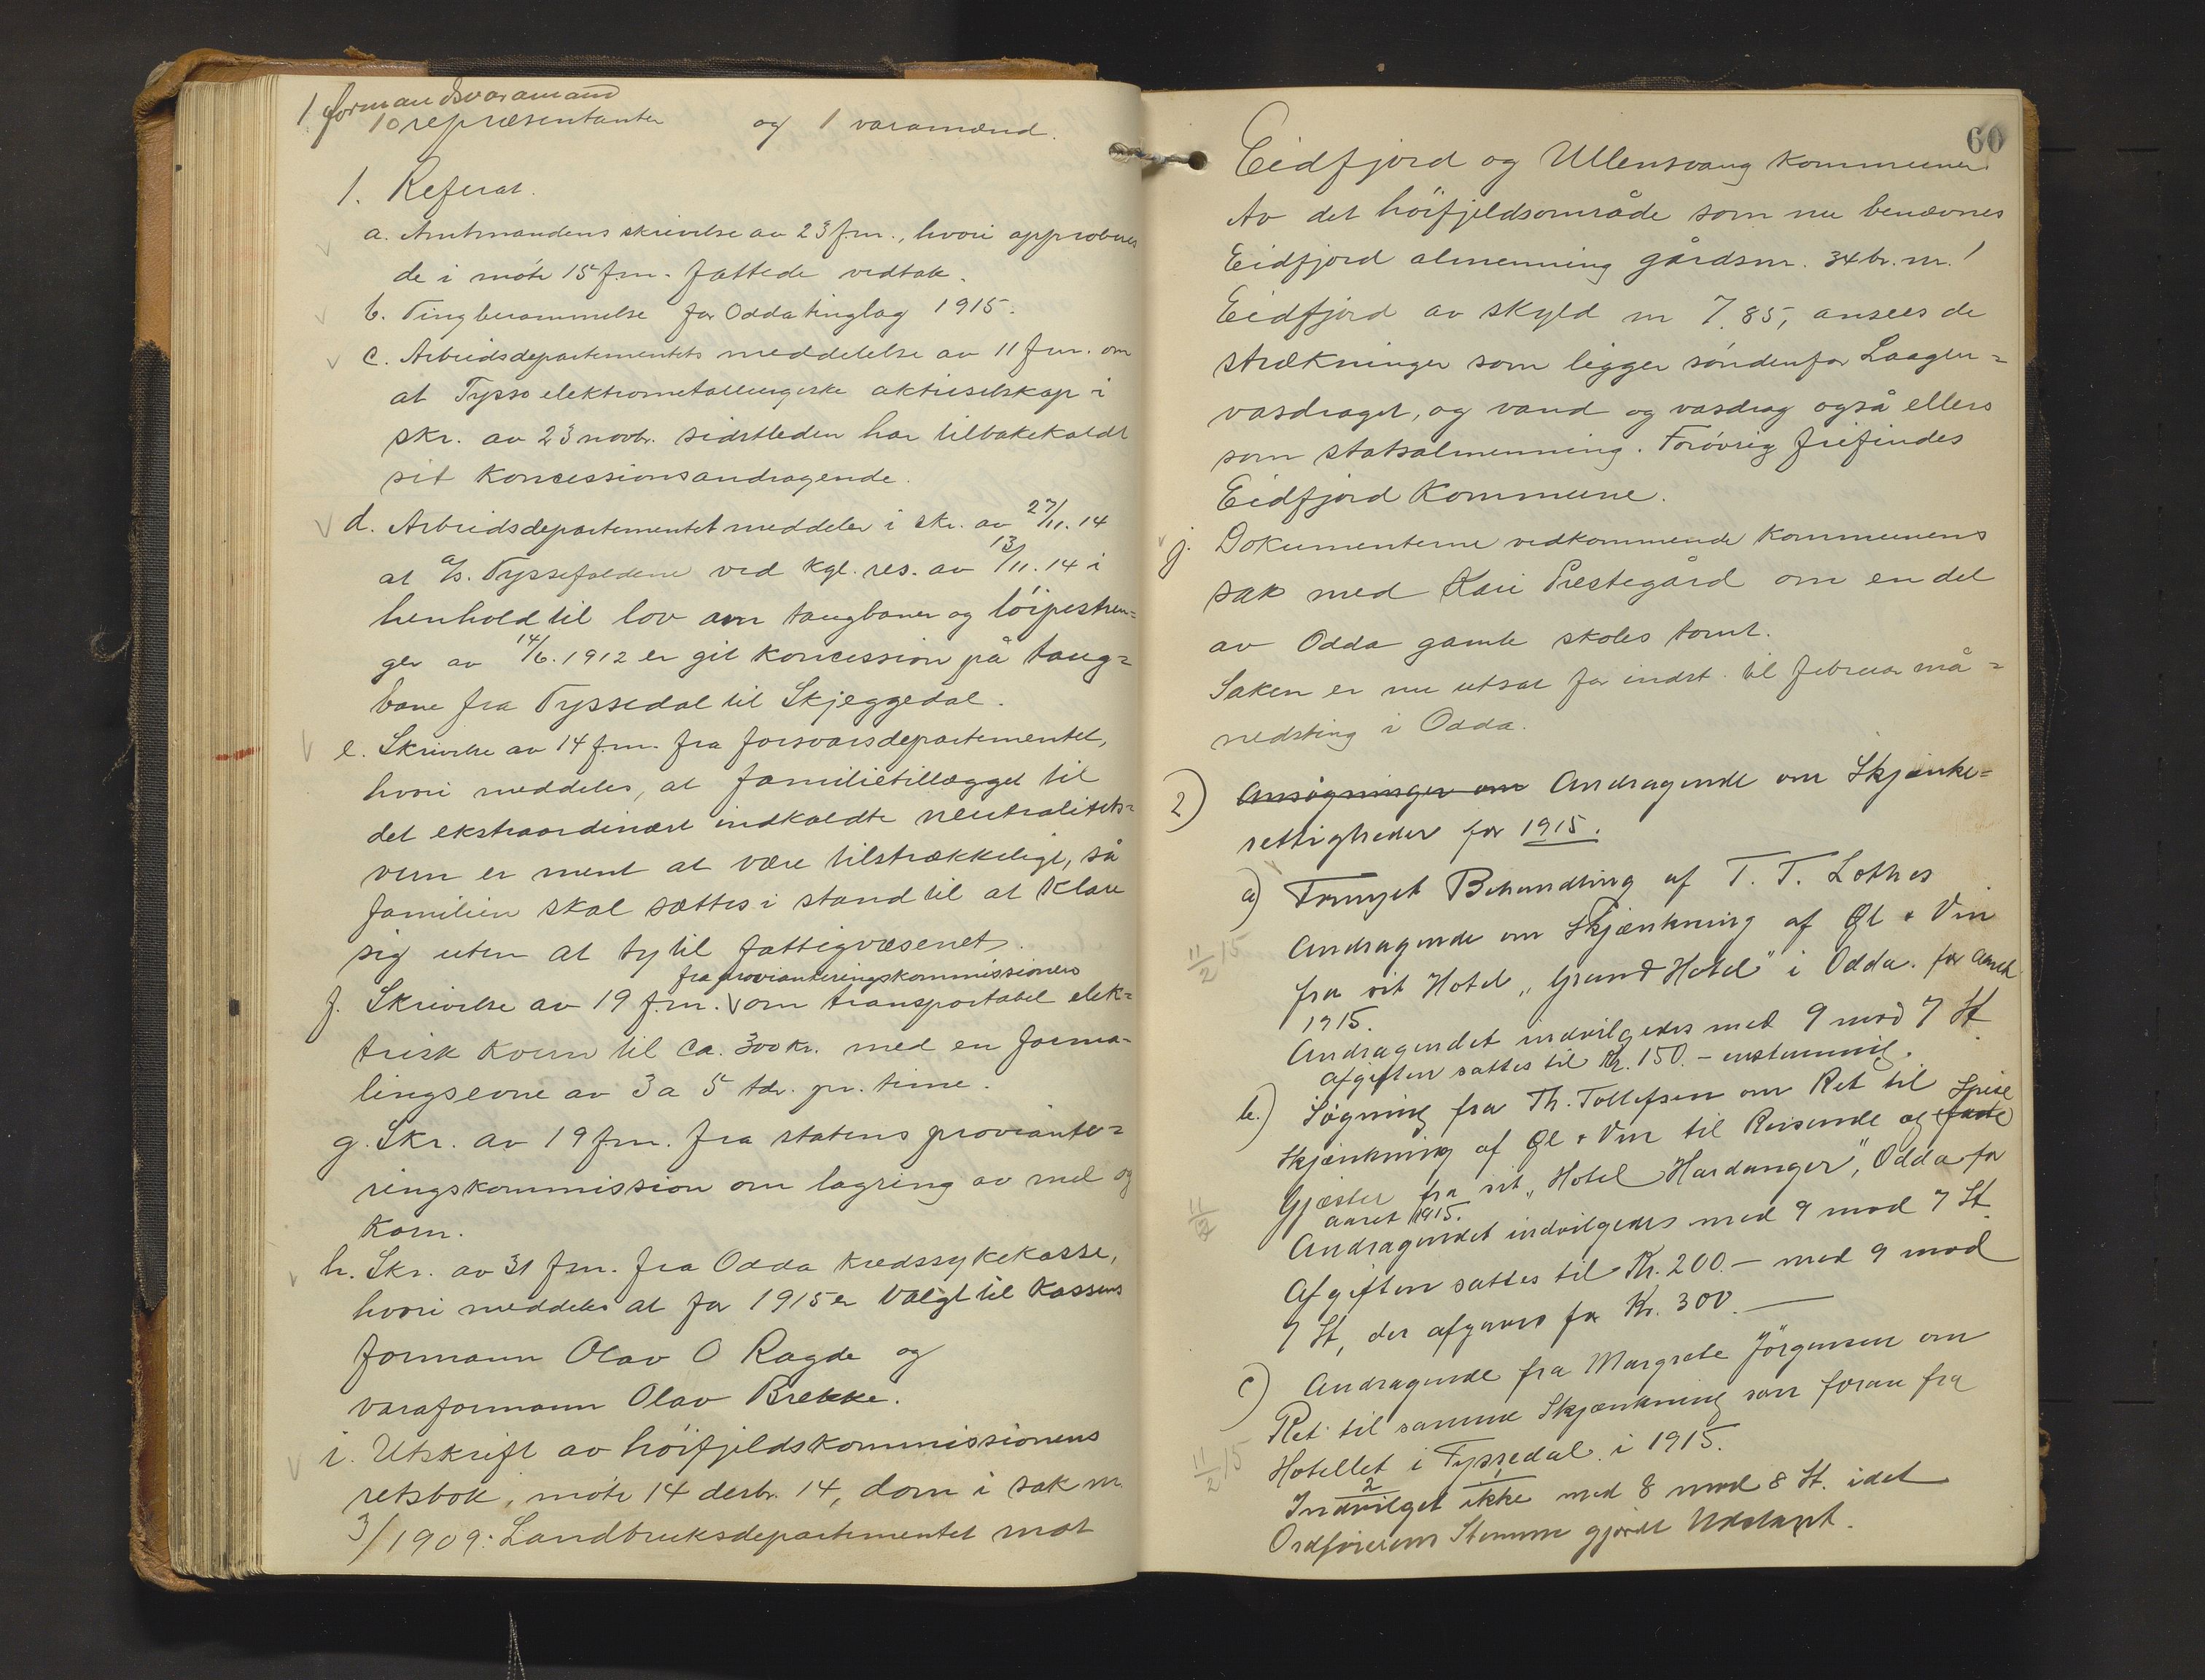 1 formandsvaramand
10 repræsentanter og 1 varamænd.
1. Referat.
a. Amtmandens skrivelse av 23 f.m., hvori approberes
de i møte 15 f.m. fattede vedtak.
b. Tingberammelse for Odda tinglag 1915.
c. Arbeidsdepartementets meddelelse av 11 f.m. om
at Tysso elektrometallurgiske aktieselskap i
skr. av 23 novbr. sidstleden har tilbakekaldt
sit koncessionsandragende.
d. Arbeidsdepartementet meddeler i skr. av 27/11.14
at a/s. Tyssefaldene ved kgl. res. av 13/11.14 i
henhold til lov om taugbaner og löipestren=
ger av 14/6.1912 er git koncession på taug=
bane fra Tyssedal til Skjeggedal.
e. Skrivelse av 14 f.m. fra forsvarsdepartementet,
hvori meddeles, at familietillægget til
det ekstraordinært indkaldte neutralitets=
vern er ment at være tilstrækkeligt, så
familien skal sættes i stand til at klare
sig uten at ty til fattigvæsenet.
fra provianteringskommissionens
f. Skrivelse av 19 f.m. om transportabel elek=
trisk kvern til ca. 300 kr. med en forma-
lingsevne av 3 a 5 tdr. pr. time.
g. Skr. av 19 f.m. fra statens proviante=
ringskommission om lagring av mel og
korn.
h. Skr. av 31 f.m. fra Odda kredssykekasse,
hvori meddeles at for 1915 er valgt til kassens
formann Olav O Ragde og
varaformann Olav Brekke.
i. Utskrift av höifjeldskommissionens
retsbok, möte 14 desbr. 14, dom i sak nr.
3/1909: Landbruksdepartementet mot
60
Eidfjord og Ullensvang kommuner.
Av det höifjeldsområde som nu benævnes
Eidfjord almenning gårdsnr. 34 br. nr. 1
Eidfjord av skyld m 7.85, ansees de
strækninger som ligger söndenfor Laagen=
vasdraget, og vand og vasdrag også ellers
som statsalmenning. Forövrig frifindes
Eidfjord kommune.
j. Dokumenterne vedkommende kommunens
sak med Kari Prestegård om en del
av Odda gamle skoles tomt.
Saken er nu utsat for indst. til februar må=
nedsting i Odda.
2) Ansøgninger om Andragende om Skjænke=
rettigheder for 1915.
a) Fornyet Behandling af T. T. Lothes
Andragende om Skjænkning af Øl & Vin
11/2 15
fra sit Hotel "Grand Hotel" i Odda. for aaret
1915.
Andragendet indvilgedes med 9 mod 7 St.
Afgiften sattes til Kr. 150.- enstemmig.
b.) Søgning fra Th. Tollefsen om Ret til
Skjænkning af Øl & Vin til Reisende og faste Spise
Gjæster fra sit "Hotel Hardanger", Odda for
aaret 1915.
11/2
Andragendet indvilgedes med 9 mod 7 St.
Afgiften sattes til Kr. 200.- med 9 mod
7 St, der afgaves for Kr. 300.
c) Andragende fra Margrete Jörgensen om
Ret til samme Skjænkning som foran fra
11/2 15
Hotellet i Tyssedal i 1915.
Indvilget ikke med 8 mod 8 St. idet
Ordførerens Stemme gjorde Udslaget.